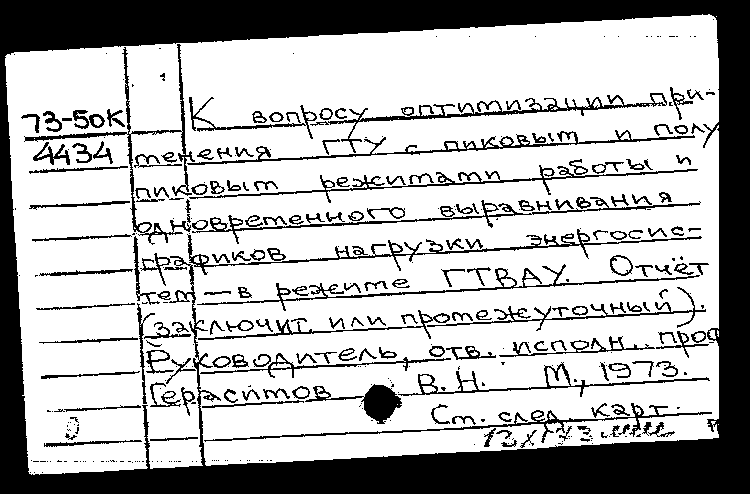 73-50К
4434
К вопросу оптимизации при-
менения ГТУ с пиковым и полу
пиковым режимами работы и
одновременного выравнивания
графиков нагрузки энергосис-
тем — в режиме ГТВАУ. Отчёт
(заключит. или промежуточный).
Руководитель, отв. исполн. проф
Герасимов В. Н. М., 1973.
Ст. след. карт.
13 XI 73